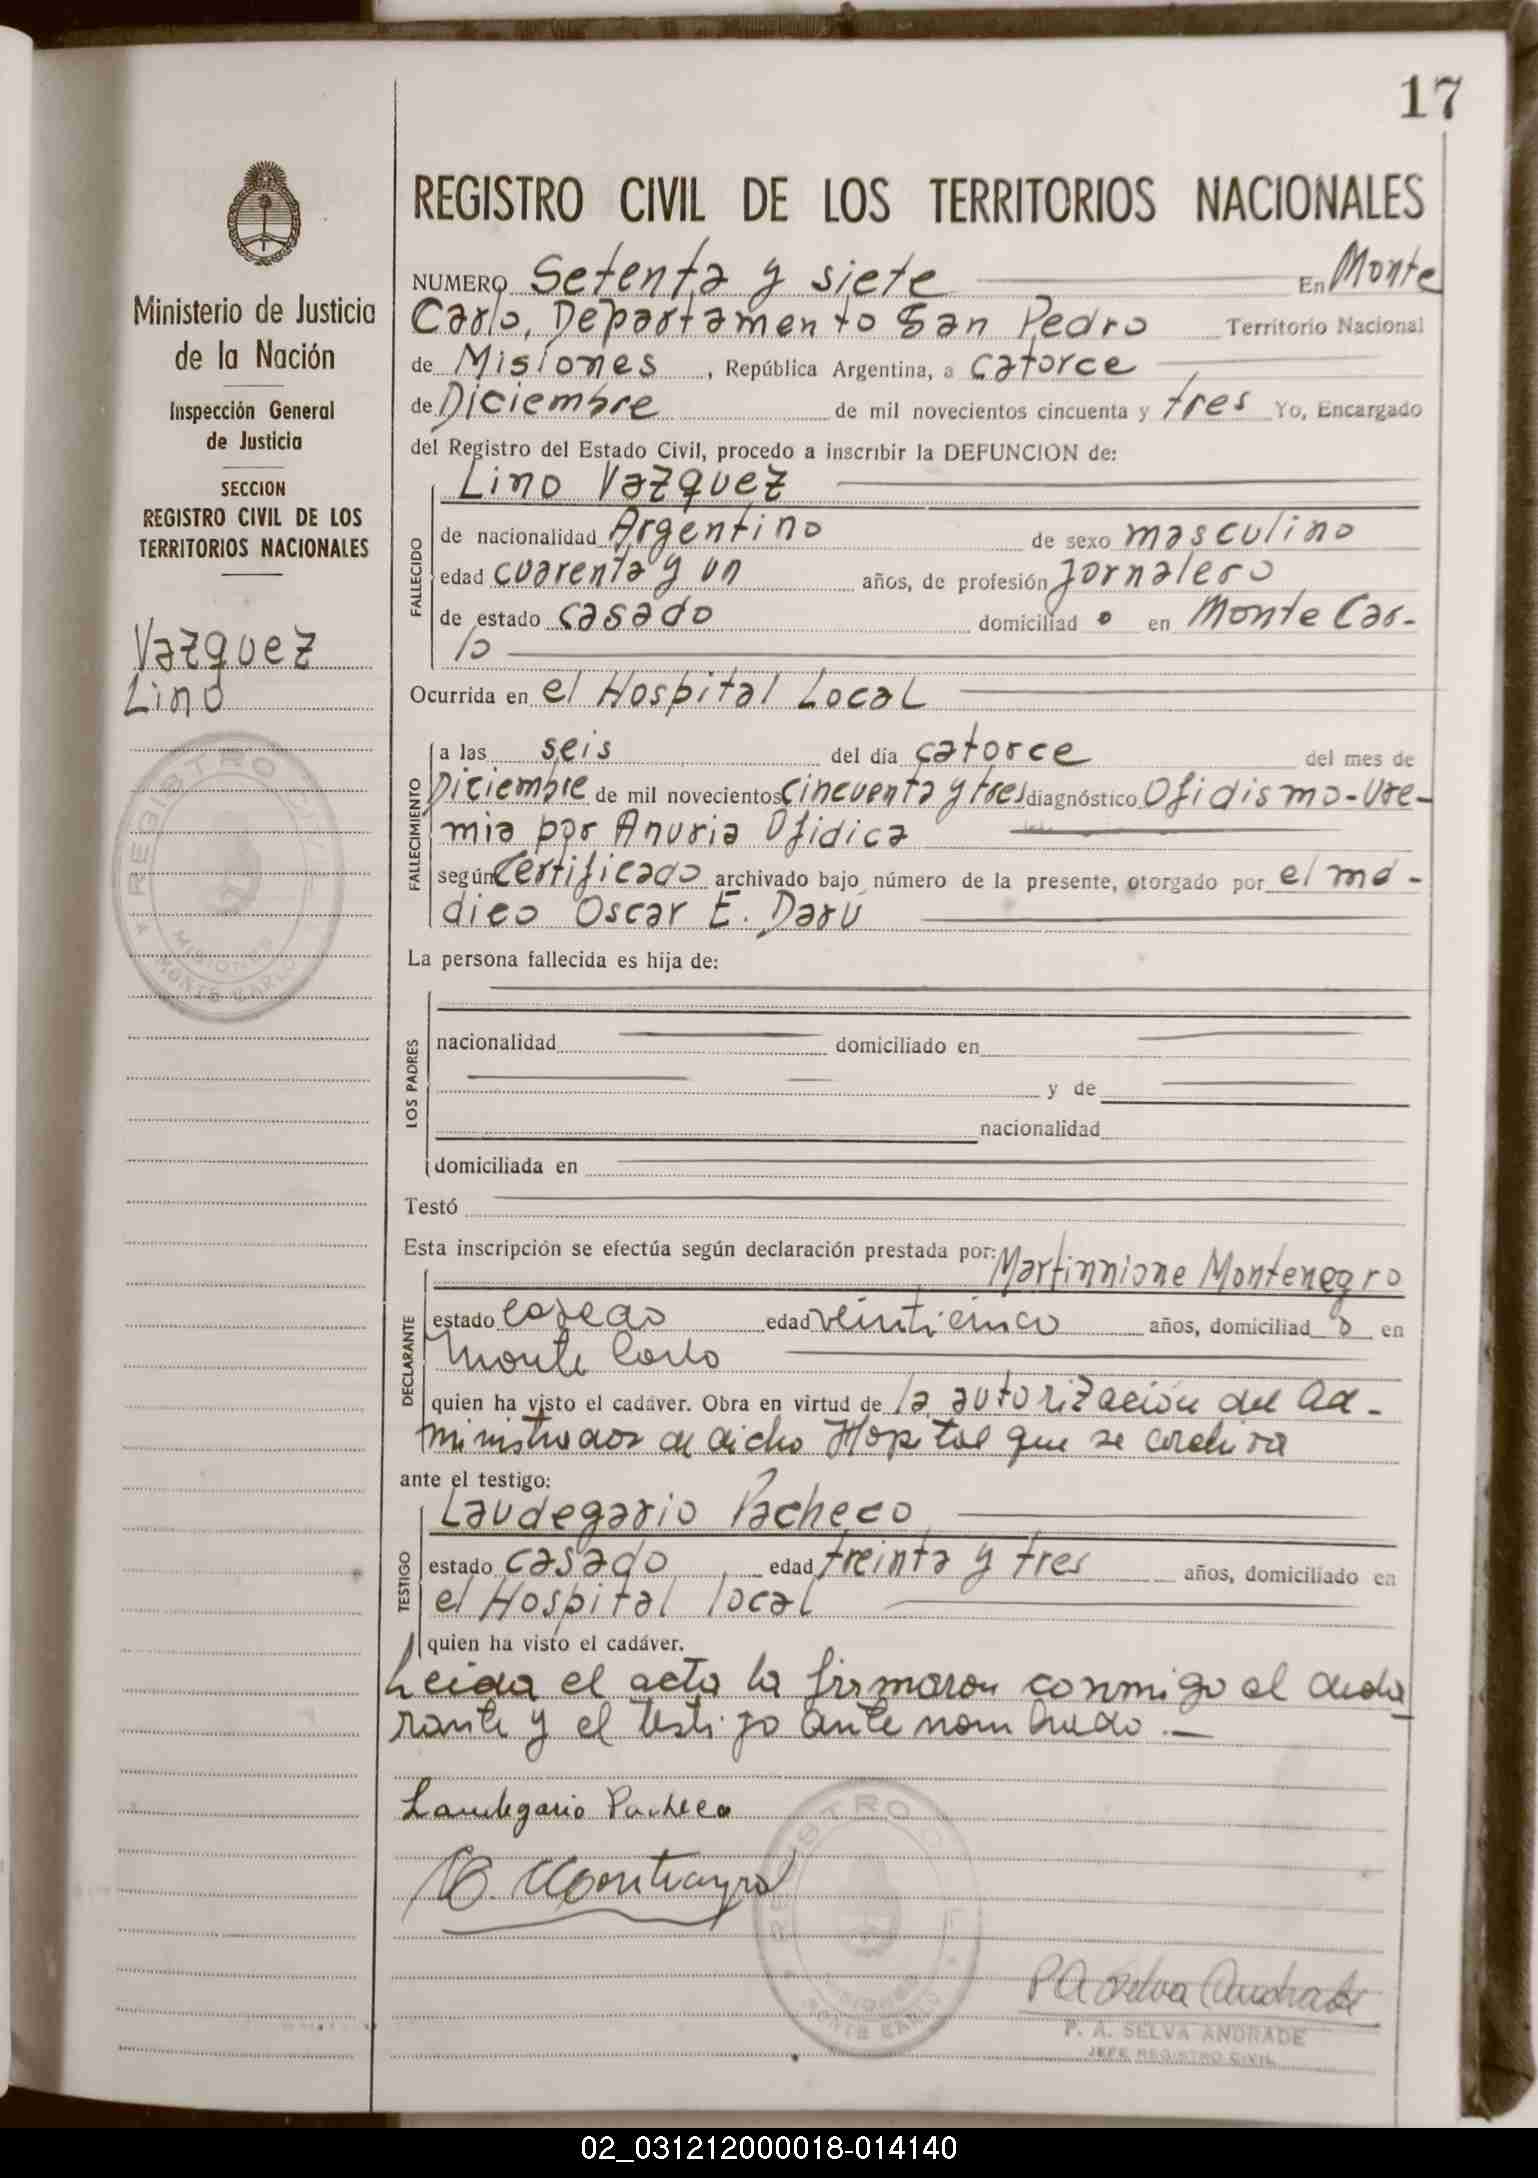 17
REGISTRO CIVIL DE LOS TERRITORIOS NACIONALES
Ministerio de Justicia
de la Nación
Inspección General
de Justicia
SECCION
REGISTRO CIVIL DE LOS
TERRITORIOS NACIONALES
Vazquez
Lino
REGISTRO CIVIL
MISIONES
MONTE CARLO
NUMERO Setenta y siete En Monte
Carlo, Departamento San Pedro Territorio Nacional
de Misiones, República Argentina, a catorce
de Diciembre de mil novecientos cincuenta y tres Yo, Encargado
del Registro del Estado Civil, procedo a inscribir la DEFUNCION de:
Lino Vazquez
FALLECIDO
de nacionalidad Argentino de sexo masculino
edad cuarenta y un años, de profesión Jornalero
de estado casado domiciliad o en Monte Car-
lo
Ocurrida en el Hospital Local
FALLECIMIENTO
a las seis del día catorce del mes de
Diciembre de mil novecientos cincuenta y tres diagnóstico Ofidismo-Ure-
mia por Anuria Ofidica
según certificado archivado bajo número de la presente, otorgado por el mé-
dico Oscar E. Darú
La persona fallecida es hija de:
LOS PADRES
nacionalidad domiciliado en
y de
nacionalidad
domiciliada en
Testó
Esta inscripción se efectúa según declaración prestada por: Martinnione Montenegro
DECLARANTE
estado casado edad veinticinco años, domiciliad o en
Monte Carlo
quien ha visto el cadáver. Obra en virtud de la autorización del Ad-
ministrador de dicho Hospital que se archiva
ante el testigo:
Laudegario Pacheco
TESTIGO
estado casado edad treinta y tres años, domiciliado en
el Hospital local
quien ha visto el cadáver.
Leida el acta la firmaron conmigo el decla
rante y el testigo ante nombrado.—
Laudegario Pacheco
M. Montenegro
REGISTRO CIVIL
MISIONES
MONTE CARLO
P A Selva Andrade
P. A. SELVA ANDRADE
JEFE REGISTRO CIVIL
02_031212000018-014140